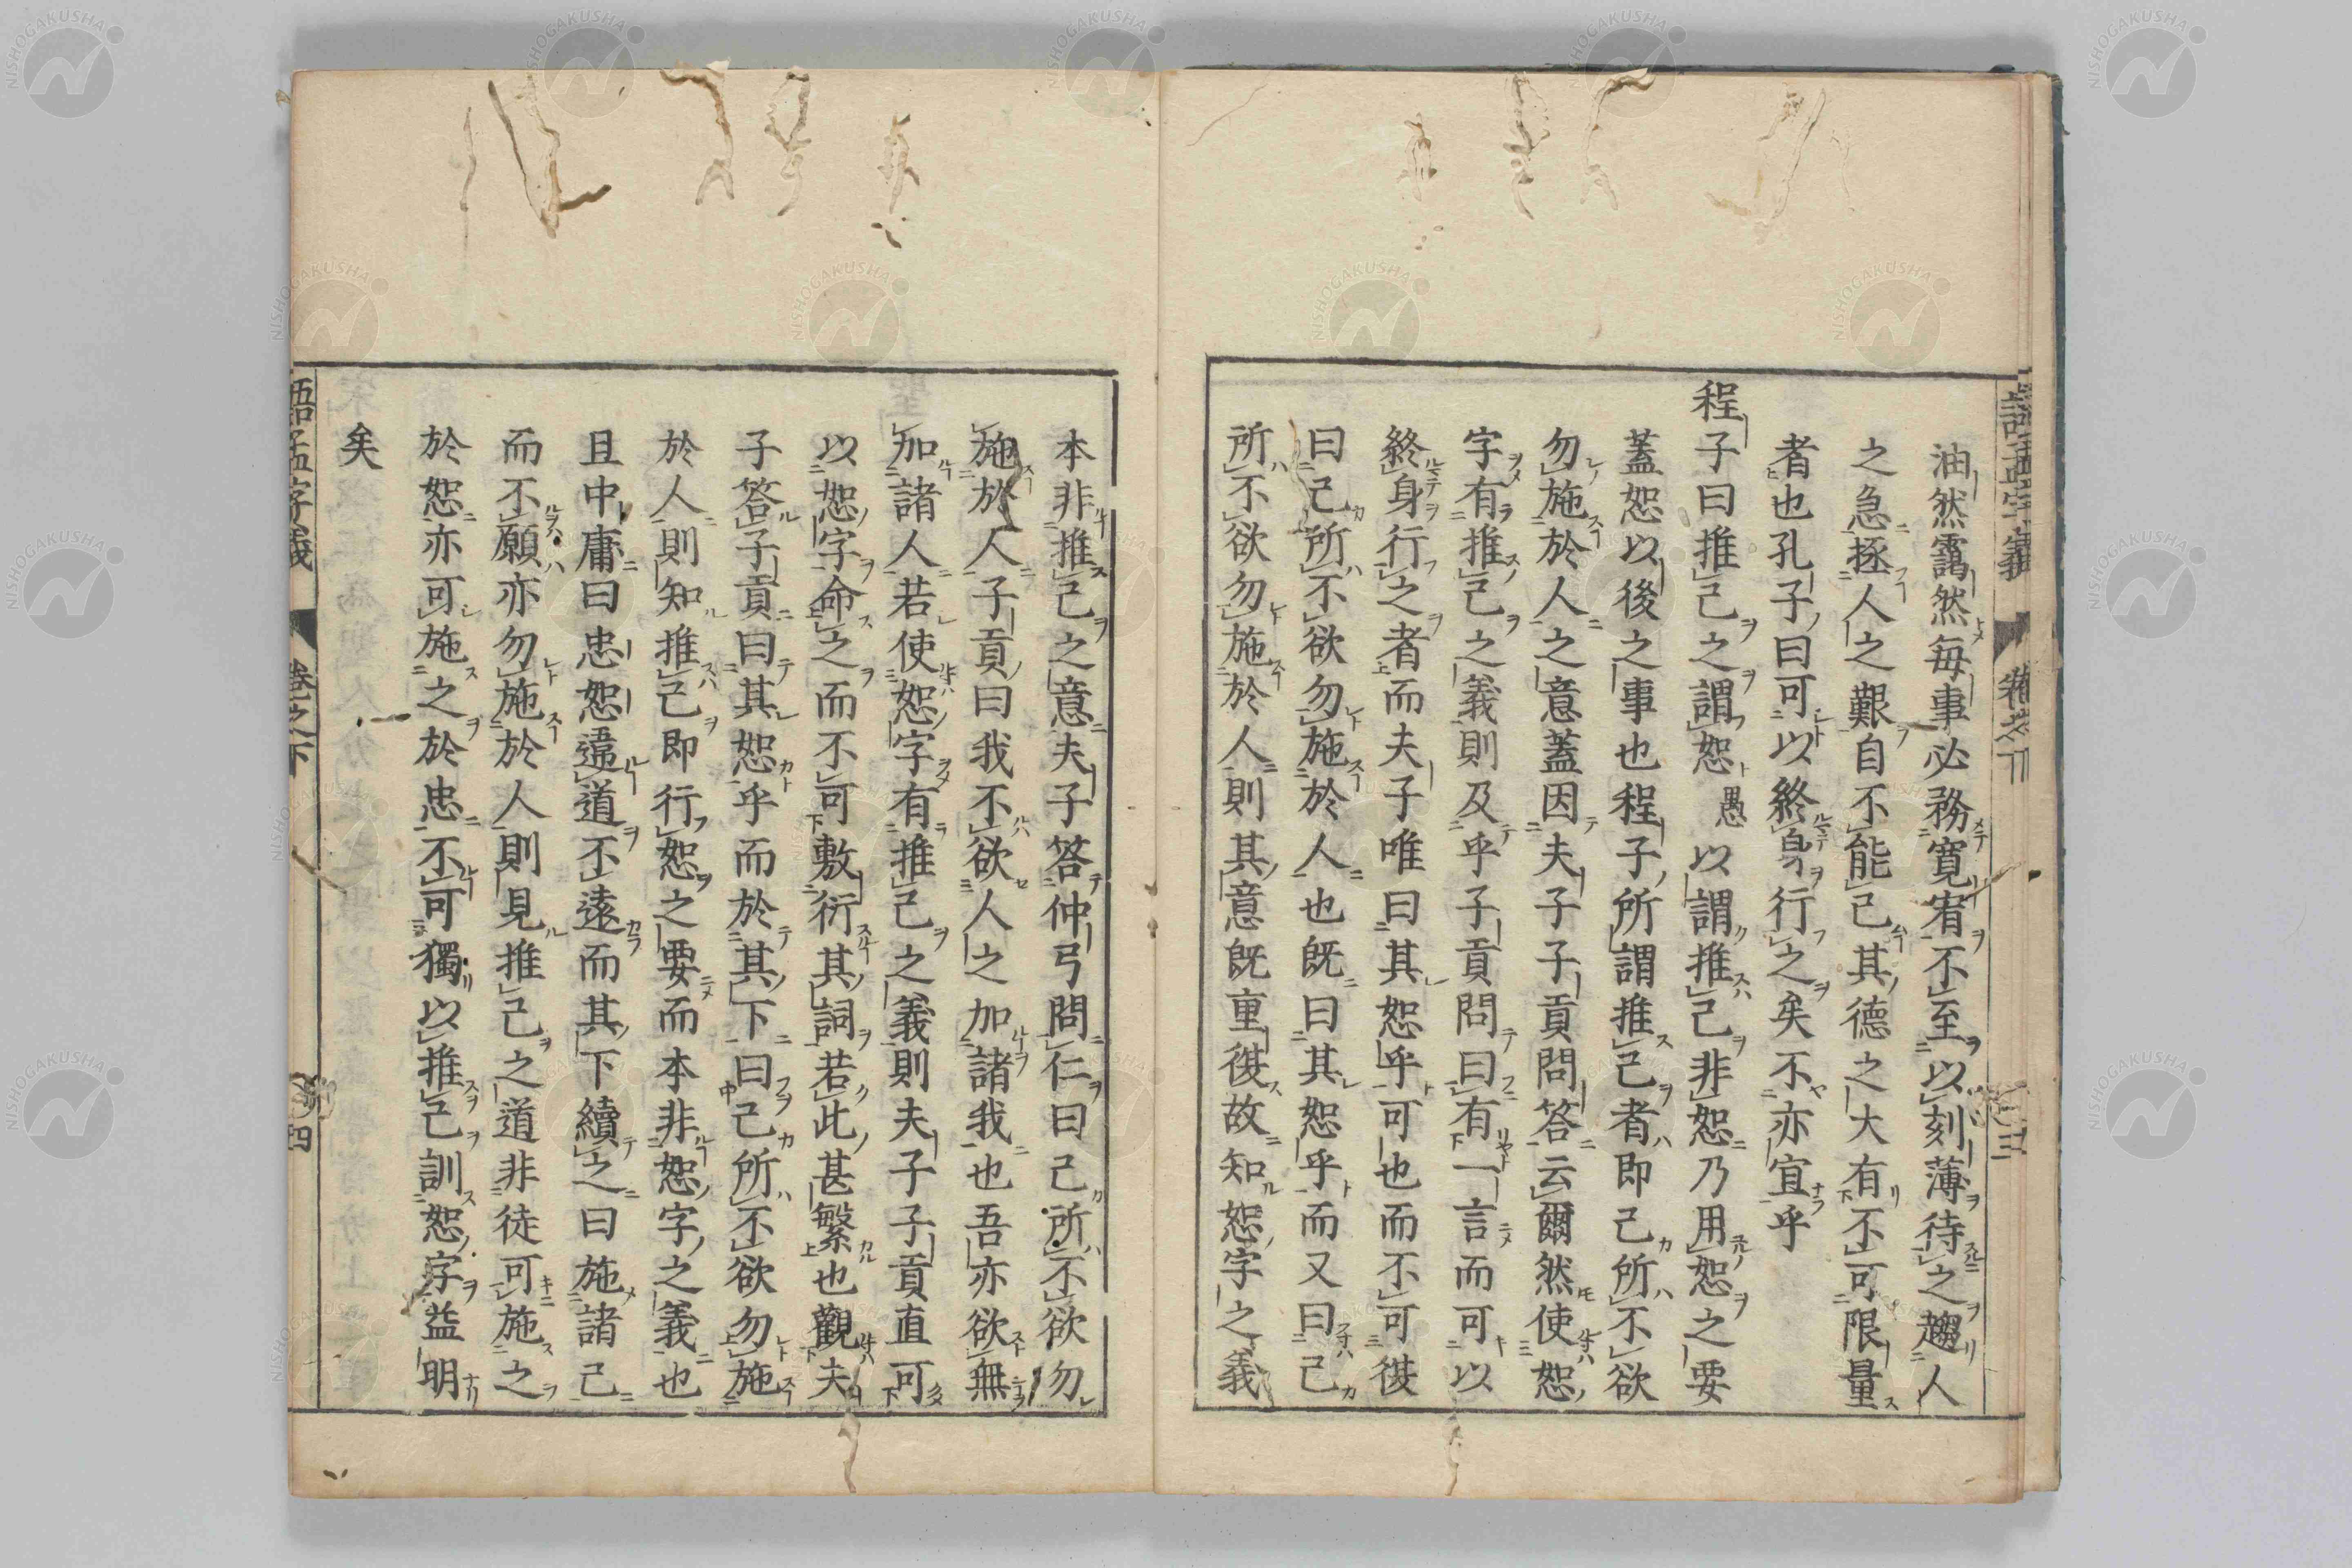 油然靄然毎事必務寛宥不至以刻薄待之趨人
之急拯人之艱自不能已其德之大有不可限量
者也孔子曰可以終身行之矣不亦宜乎
程子曰推己之謂恕愚以謂推己非恕乃用恕之要
蓋恕以後之事也程子所謂推己者即己所不欲
勿施於人之意蓋因夫子子貢問答云爾然使恕
字有推己之義則及乎子貢問曰有一言而可以
終身行之者而夫子唯曰其恕乎可也而不可復
曰己所不欲勿施於人也既曰其恕乎而又曰己
所不欲勿施於人則其意既重復故知恕字之義
本非推己之意夫子答仲弓問仁曰己所不欲勿
施於人子貢曰我不欲人之加諸我也吾亦欲無
加諸人若使恕字有推己之義則夫子子貢直可
以恕字命之而不可敷衍其詞若此甚繁也觀夫
子答子貢曰其恕乎而於其下曰己所不欲勿施
於人則知推己即行恕之要而本非恕字之義也
且中庸曰忠恕違道不遠而其下續之曰施諸己
而不願亦勿施於人則見推己之道非徒可施之
於恕亦可施之於忠不可獨以推己訓恕字益明
矣
語孟字義 卷之下 四